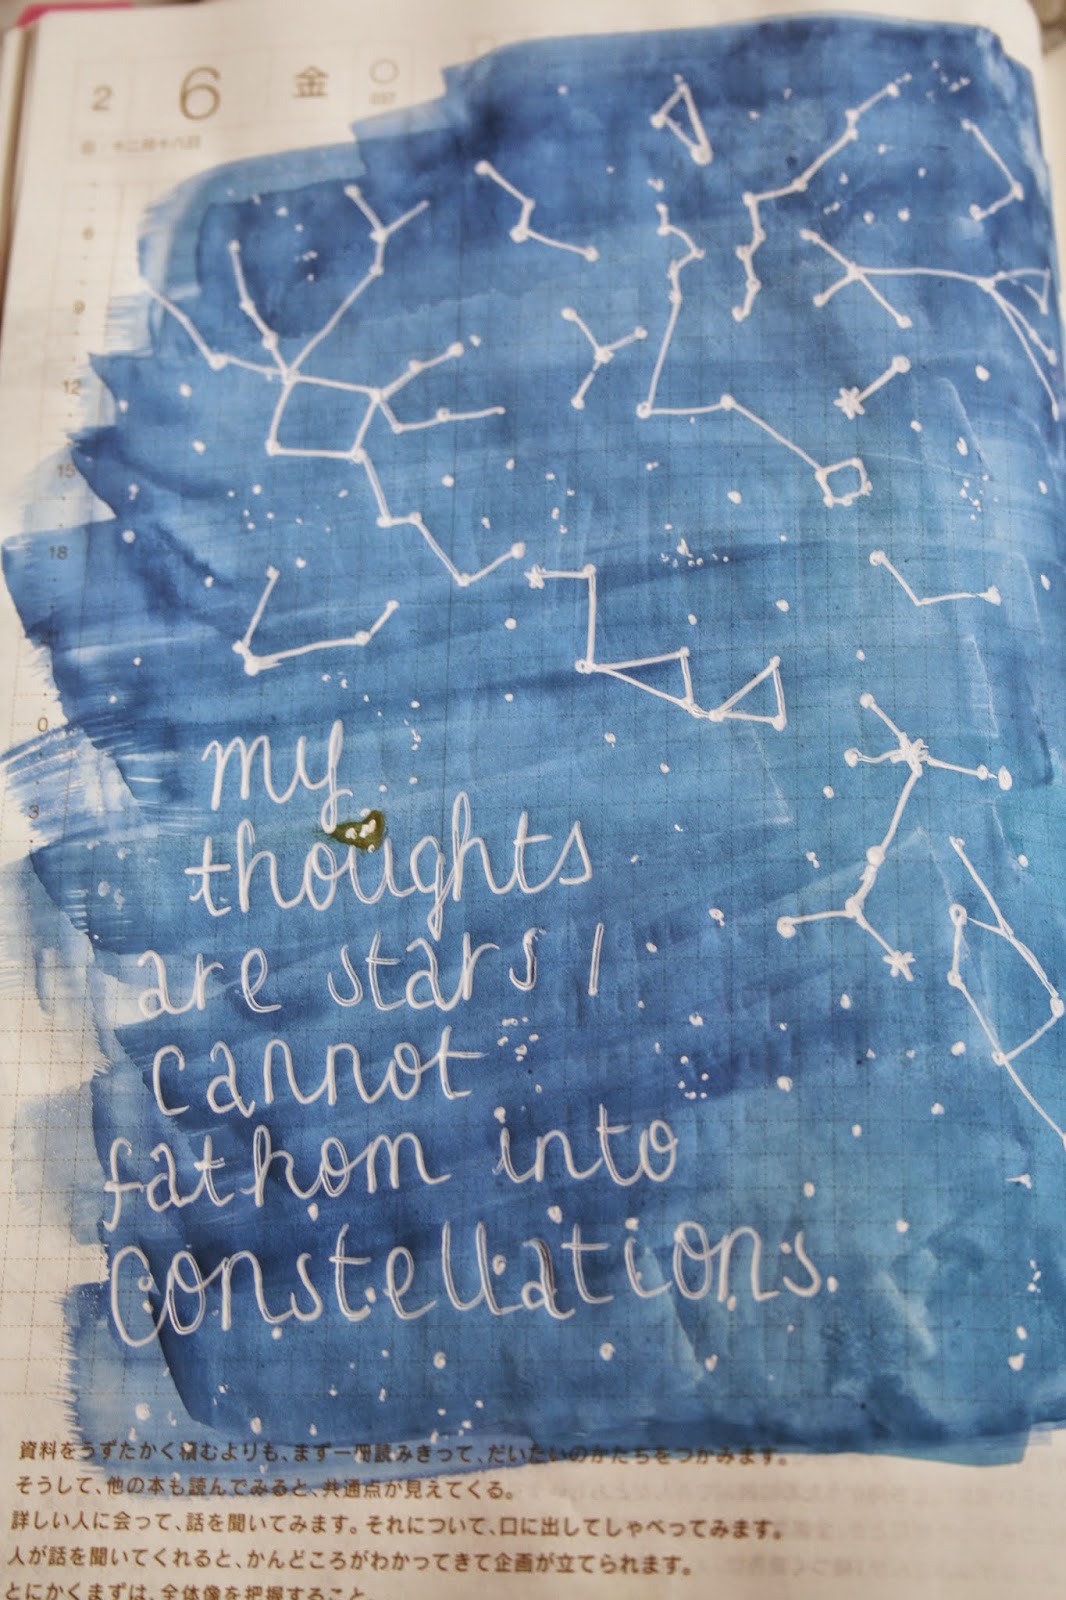 2 6 金
6
9
12
15
18
0
3
my
thoughts
are stars I
cannot
fathom into
Constellations.
資料をうずたかく積むよりも、まず一冊読みきって、だいたいのかたちをつかみます。
そうして、他の本も読んでみると、共通点が見えてくる。
詳しい人に会って、話を聞いてみます。それについて、口に出してしゃべってみます。
人が話を聞いてくれると、かんどころがわかってきて企画が立てられます。
とにかくまずは、全体像を把握すること。